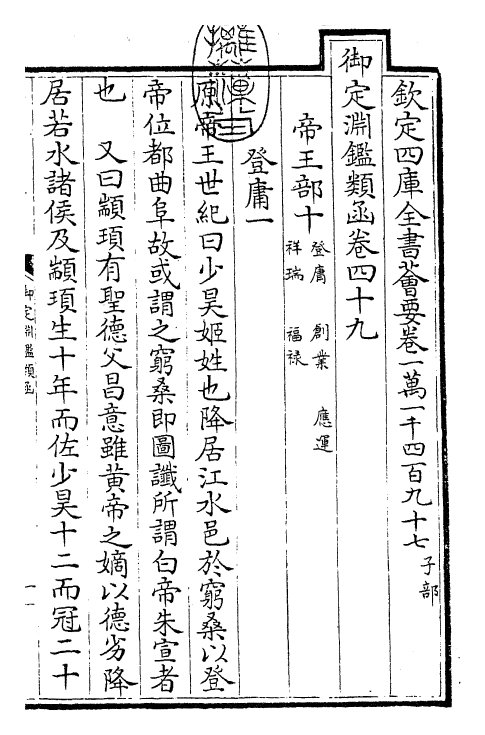 欽定四庫全書薈要卷一萬一千四百九十七 子部
御定淵鑑類函卷四十九
帝王部十 登庸 創業 應運 祥瑞 福禄
登庸一
原帝王世紀曰少昊姬姓也降居江水邑於窮桑以登
帝位都曲阜故或謂之窮桑即圖讖所謂白帝朱宣者
也 又曰顓頊有聖德父昌意雖黃帝之嫡以德劣降
居若水諸侯及顓頊生十年而佐少昊十二而冠二十
御定淵鑑類函
一